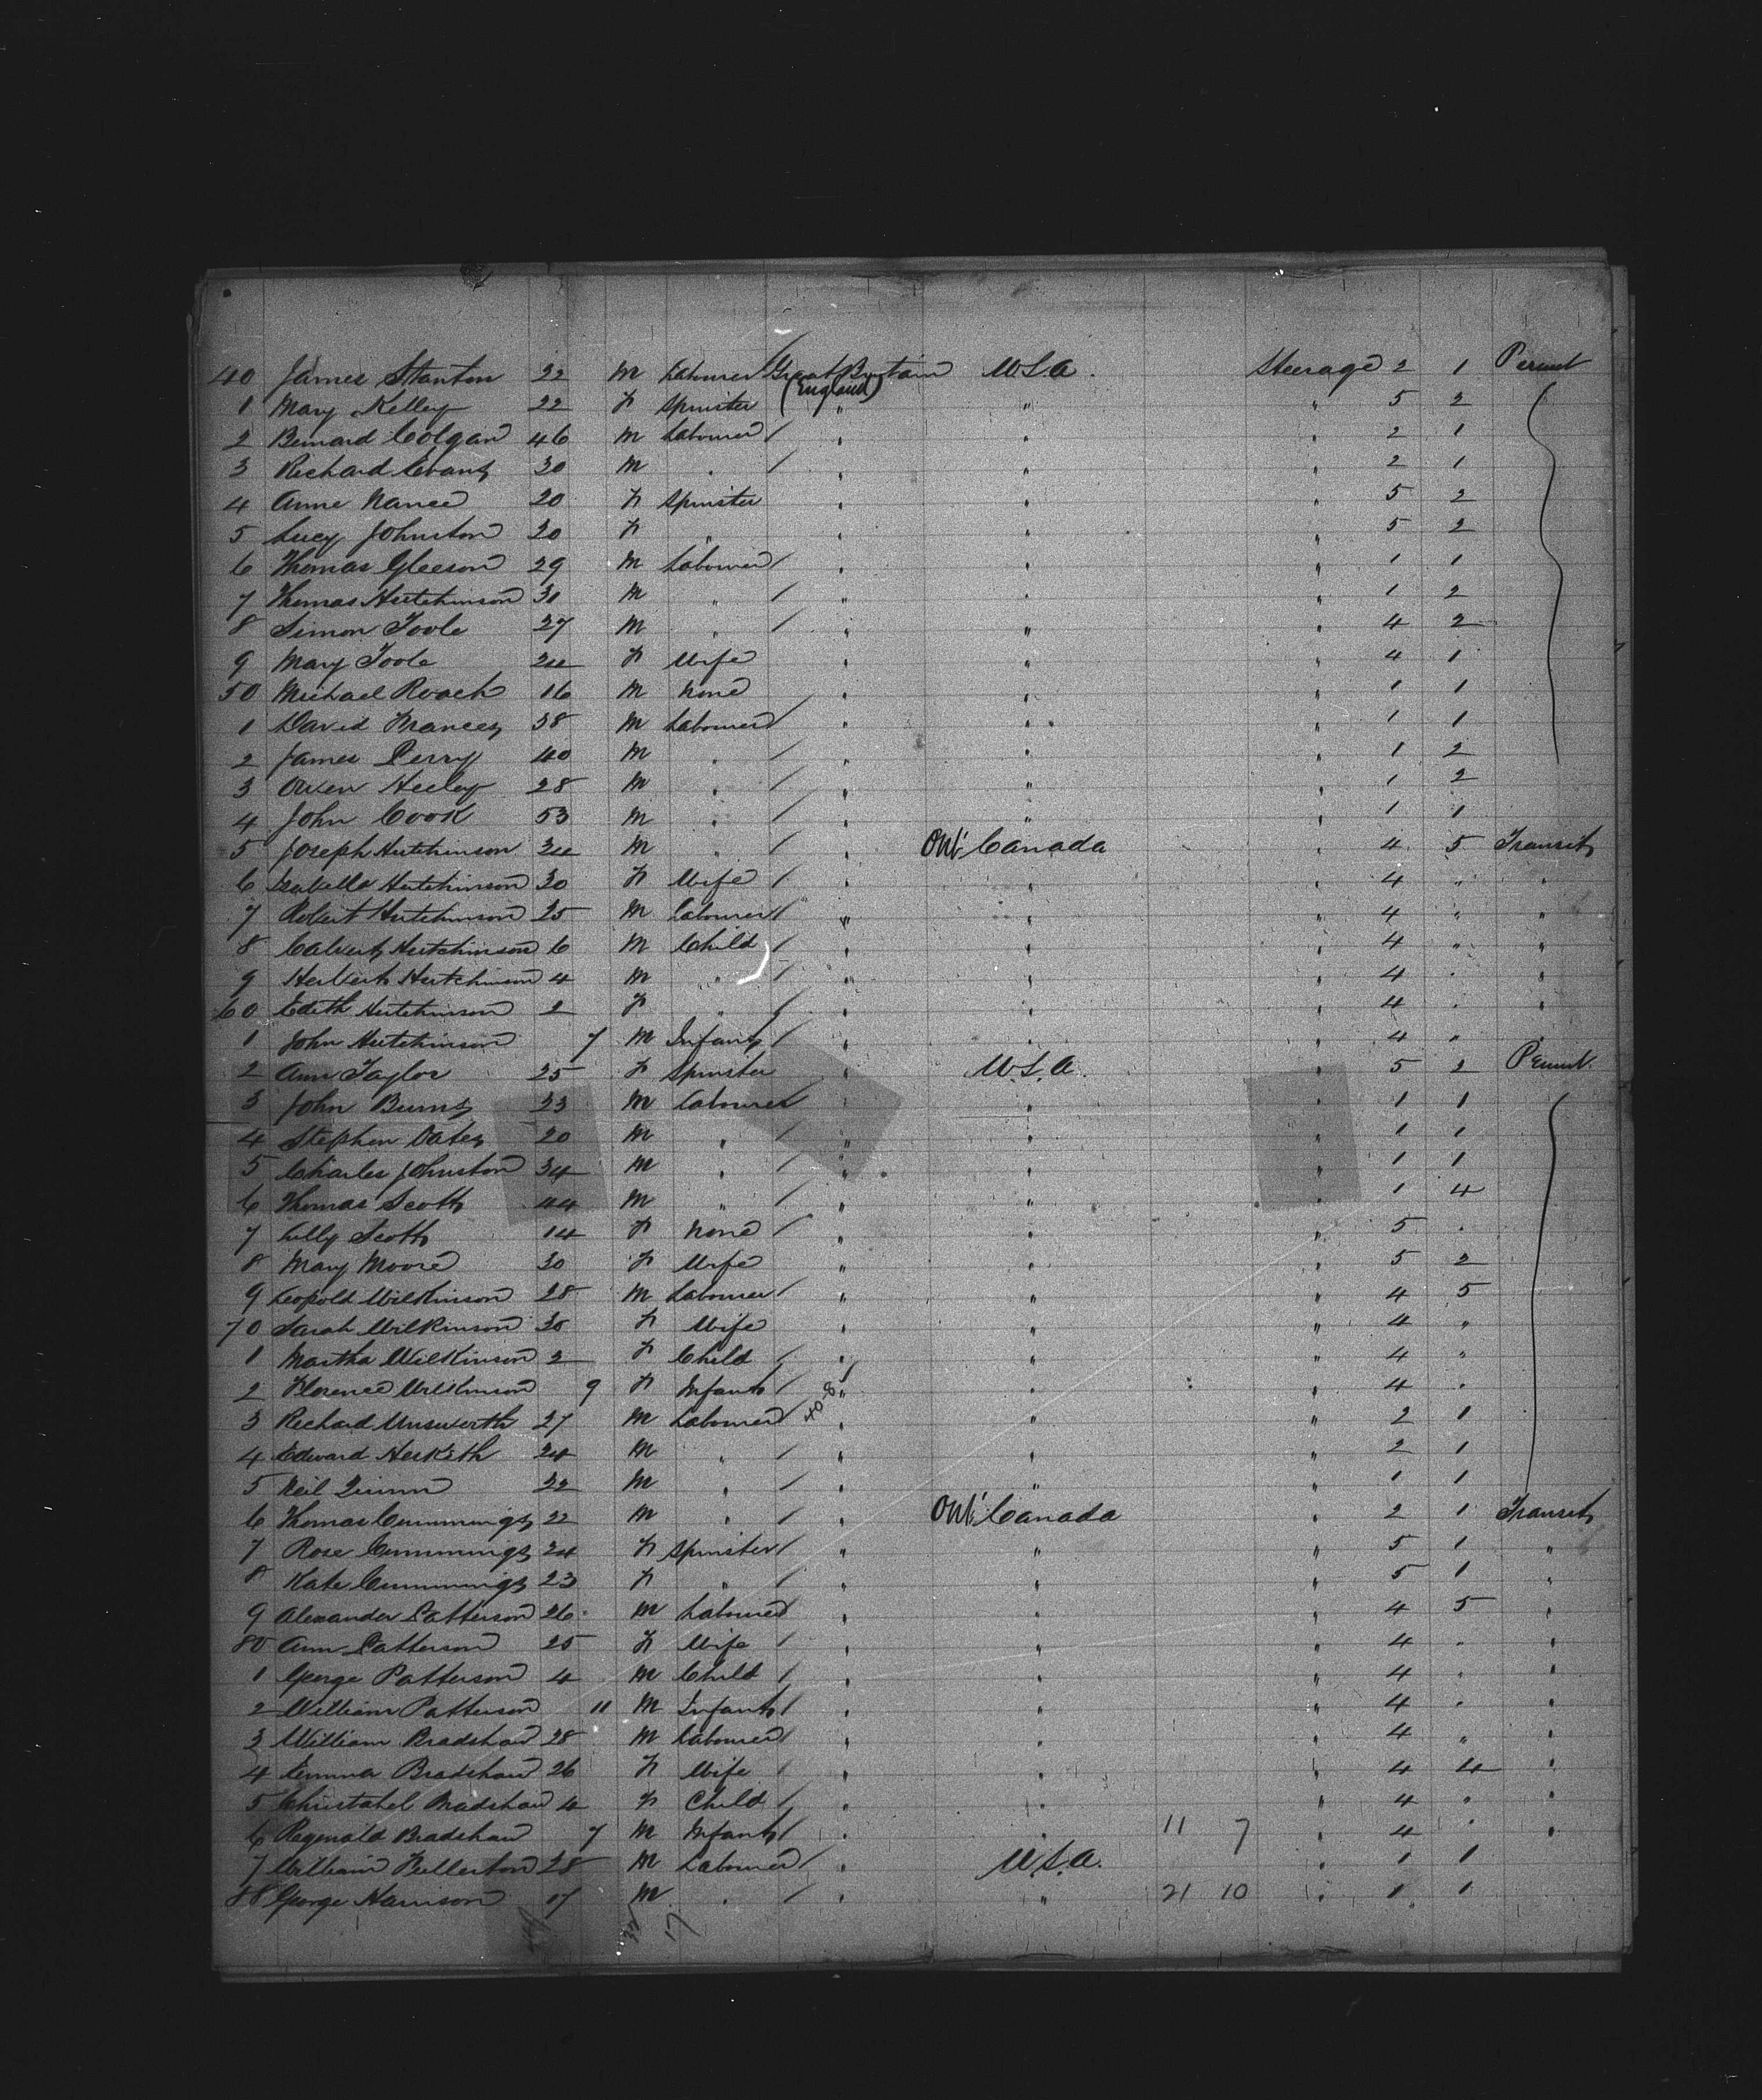 40 James Stanton 22 M Labourer Great Britain U.S.A. Steerage 2 1 Permt
(England)
1 Mary Kelley 22 F Spinster " " " 5 2
2 Bernard Colgan 46 M Labourer / " " " 2 1
3 Richard Evans 30 M " / " " " 2 1
4 Anne Nance 20 F Spinster " " " 5 2
5 Lucy Johnston 20 F " " " " 5 2
6 Thomas Gleeson 29 M Labourer / " " " 1 1
7 Thomas Hutchinson 31 M " / " " " 1 2
8 Simon Toole 27 M " / " " " 4 2
9 Mary Toole 24 F Wife " " " 4 1
50 Michael Roach 16 M None " " " 1 1
1 David Frances 38 M Labourer / " " " 1 1
2 James Perry 40 M " / " " " 1 2
3 Owen Heeley 28 M " / " " " 1 2
4 John Cook 53 M " / " " " 1 1
5 Joseph Hutchinson 34 M " / " Ont' Canada " 4 5 Transit
6 Isabella Hutchinson 30 F Wife / " " " 4 " "
7 Robert Hutchinson 25 M Labourer / " " " 4 " "
8 Calvert Hutchinson 6 M Child / " " " 4 " "
9 Herbert Hutchinson 4 M " / " " " 4 " "
60 Edith Hutchinson 2 F " / " " " 4 " "
1 John Hutchinson 7 M Infant / " " " 4 " "
2 Ann Taylor 25 F Spinster " U.S.A. " 5 2 Permt.
3 John Burns 23 M Labourer / " " " 1 1
4 Stephen Oates 20 M " / " " " 1 1
5 Charles Johnston 34 M " / " " " 1 1
6 Thomas Scott 44 M " / " " " 1 4
7 Lilly Scott 14 F None / " " " 5 "
8 Mary Moore 30 F Wife " " " 5 2
9 Leopold Wilkinson 28 M Labourer / " " " 4 5
70 Sarah Wilkinson 30 F Wife " " " 4 "
1 Martha Wilkinson 2 F Child / " " " 4 "
2 Florence Wilkinson 9 F Infant / " " " 4 "
40-8
3 Richard Unsworth 27 M Labourer / " " " 2 1
4 Edward Hesketh 24 M " / " " " 2 1
5 Neil Quinn 22 M " / " " " 1 1
6 Thomas Cummings 22 M " / " Ont' Canada " 2 1 Transit
7 Rose Cummings 24 F Spinster / " " " 5 1 "
8 Kate Cummings 23 F " / " " " 5 1 "
9 Alexander Patterson 26 M Labourer " " " 4 5 "
80 Ann Patterson 25 F Wife / " " " 4 " "
1 George Patterson 4 M Child / " " " 4 " "
2 William Patterson 11 M Infant / " " " 4 " "
3 William Bradshaw 28 M Labourer " " " 4 " "
4 Emma Bradshaw 26 F Wife / " " " 4 4 "
5 Christabel Bradshaw 4 F Child / " " " 4 " "
6 Reginald Bradshaw 7 M Infant / " " 11 7 " 4 " "
7 William Fullerton 28 M Labourer / " U.S.A. " 1 1
88 George Harrison 17 M " / " " 21 10 " 1 1
32 17